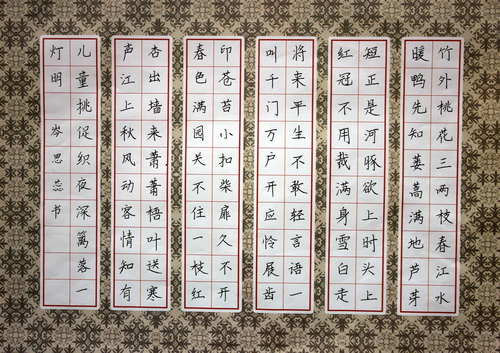 竹外桃花三两枝春江水
暖鸭先知蒌蒿满地芦芽
短正是河豚欲上时头上
红冠不用裁满身雪白走
将来平生不敢轻言语一
叫千门万户开应怜屐齿
印苍苔小扣柴扉久不开
春色满园关不住一枝红
杏出墙来萧萧梧叶送寒
声江上秋风动客情知有
儿童挑促织夜深篱落一
灯明 岑思蕊书